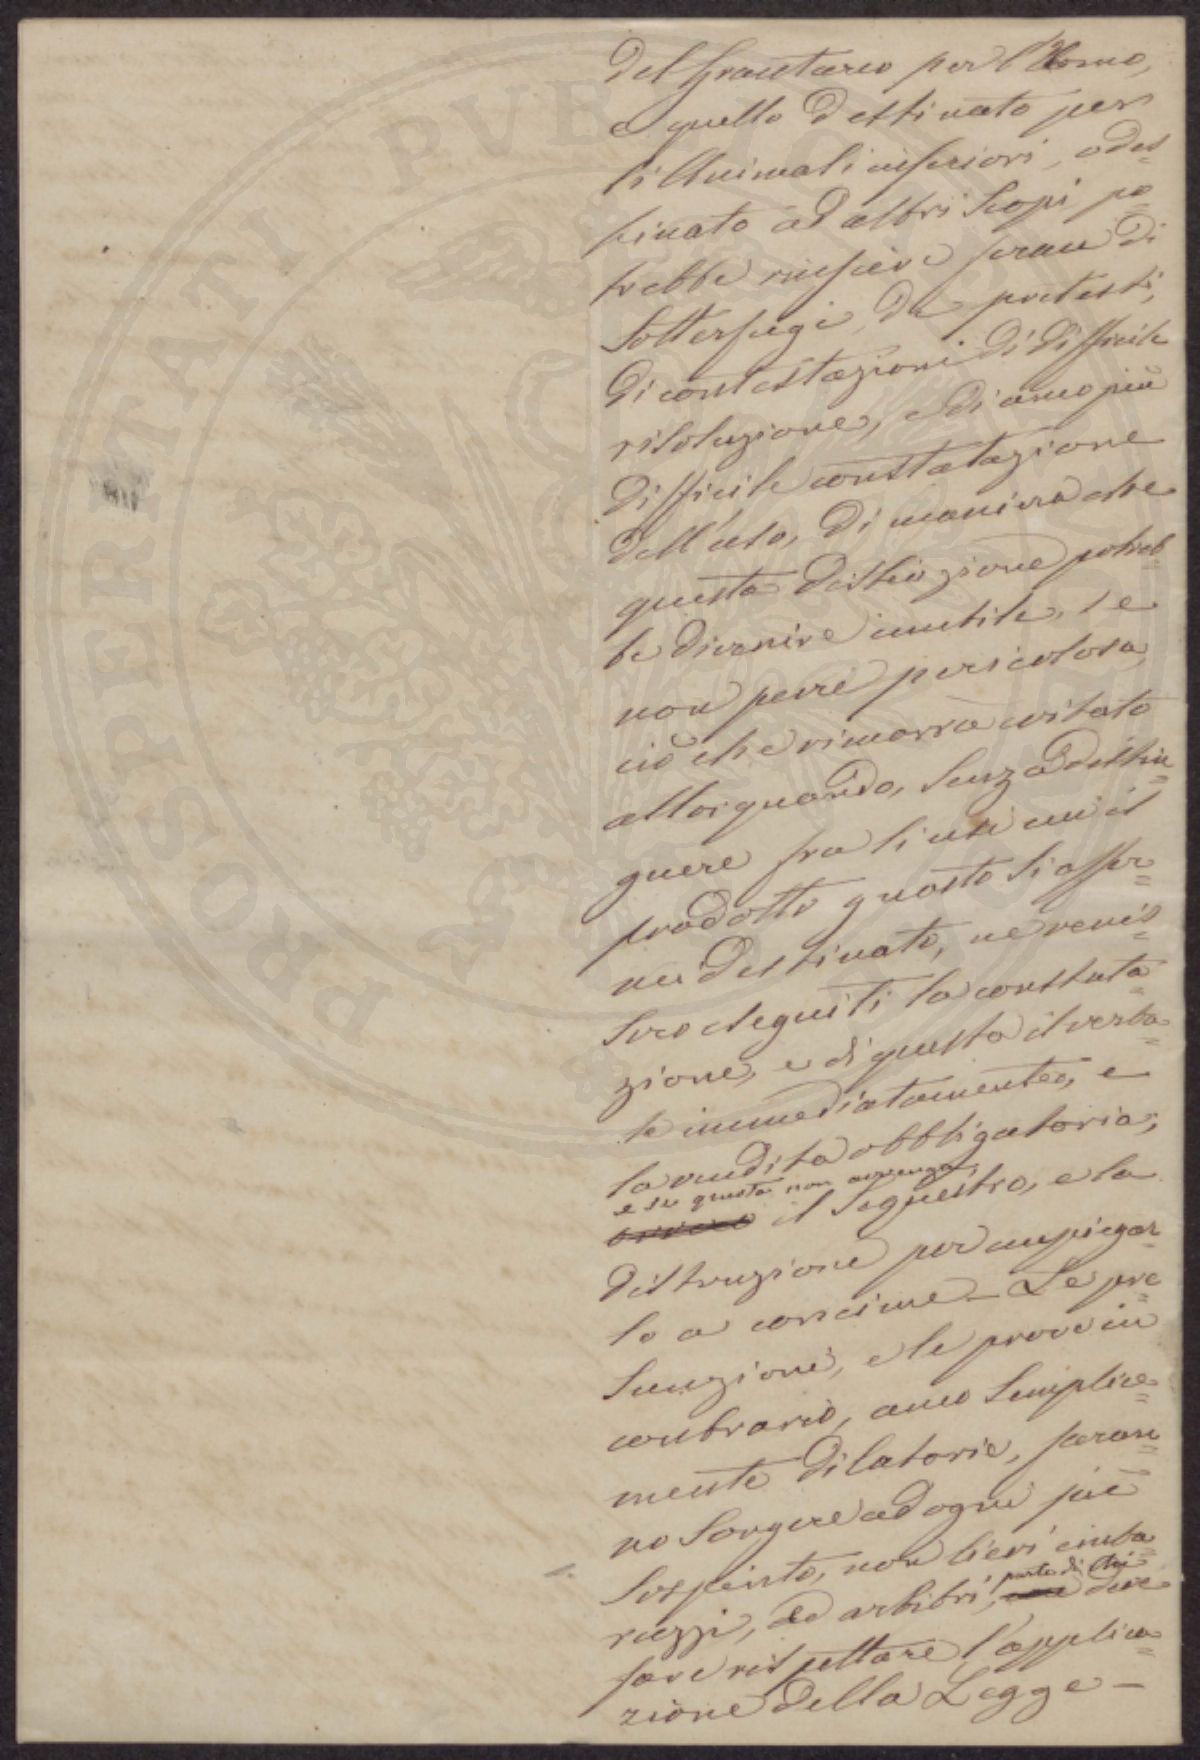 del Granturco per l'Uomo,
e quello destinato per
li Animali inferiori, o des=
tinato ad altri scopi po=
trebbe riuscire ferace di
sotterfugi, di pretesti,
di contestazioni di difficile
risoluzione, e di anco più
difficile constatazione
dell'uso, di maniera che
questa distinzione potreb=
be divenire inutile, se
non pure pericolosa,
ciò che rimarrà evitato
allorquando, senza distin=
guere fra li usi cui il
prodotto guasto si affer=
ma destinato, ne venis=
sero eseguiti la constata=
zione, e di questa il verba=
le immediatamente, e
la vendita obbligatoria;
e se questa non avvenga
il sequestro, e la
distruzione per impiegar=
lo a concime – Le pre=
sunzioni, e le prove in
contrario, anco semplice=
mente dilatorie, faran=
no sorgere ad ogni piè
sospinto, non lievi imba=
razzi, ed arbitri, parte di chi deve
fare rispettare l'applica=
zione della Legge –
PROSPERITATI PVBLICAE